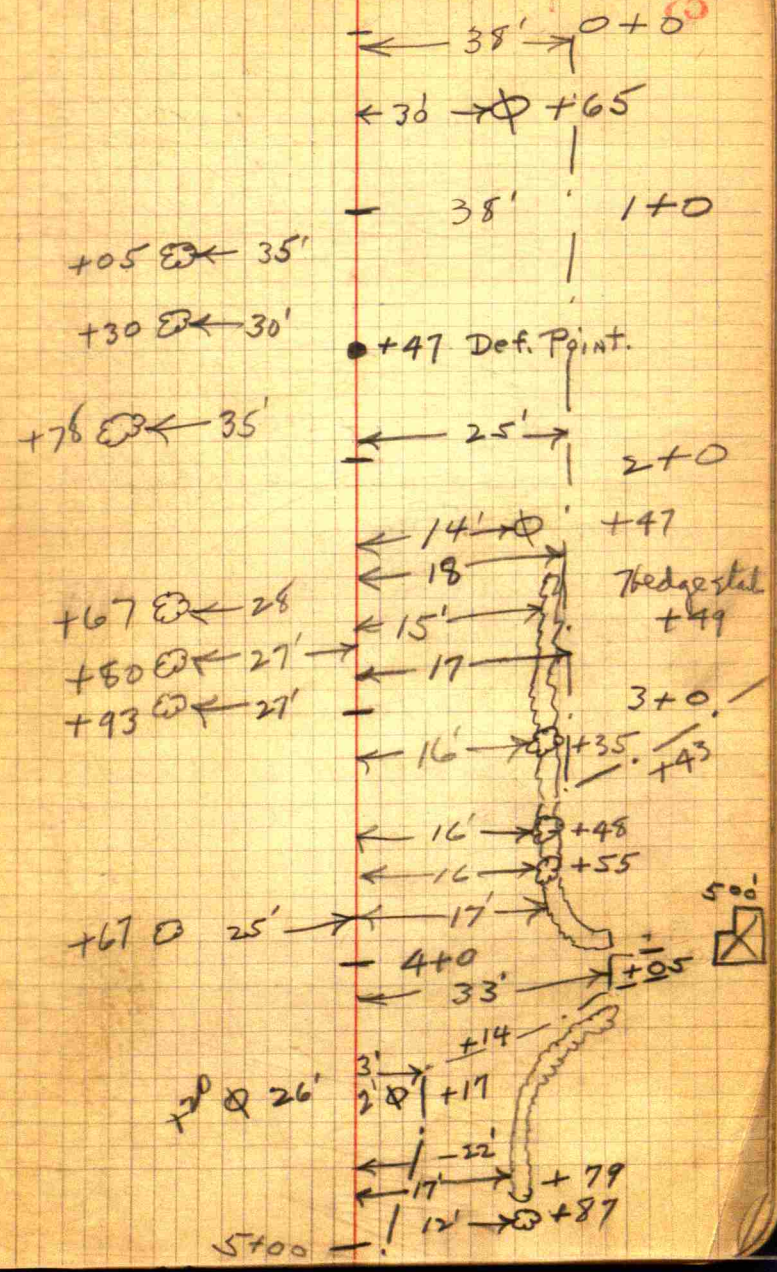 38' 0+0
30' +65
38' 1+0
+05 35'
+30 30'
+47 Def. Point.
+78 35'
25'
2+0
14' +47
18
Hedge start
+67 28 15' +49
+80 27' 17
+93 27' 3+0
16' +35 +43
16' +48
16 +55
500'
+67 25' 17'
4+0
33' +05
+14
3'
+20 26' 2' +17
22'
17' +79
12' +87
5+00